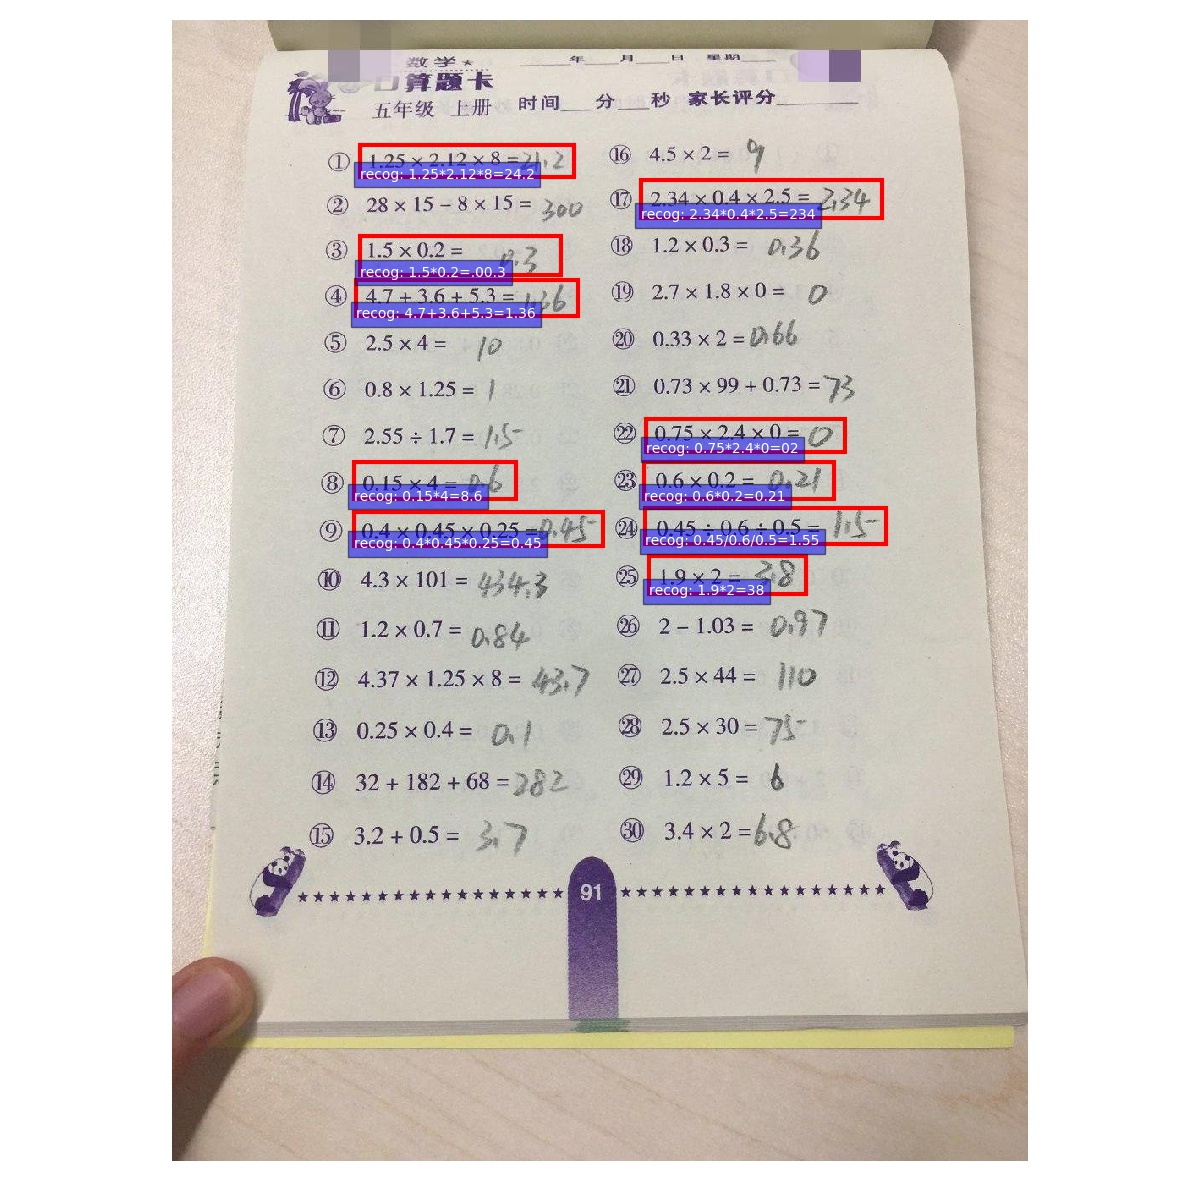 数学★ ____年____月____日 星期____
口算题卡
五年级 上册 时间____分____秒 家长评分________
① 1.25 × 2.12 × 8 = 21.2
recog: 1.25*2.12*8=24.2
② 28 × 15 − 8 × 15 = 300
③ 1.5 × 0.2 = 0.3
recog: 1.5*0.2=.00.3
④ 4.7 + 3.6 + 5.3 = 1.36
recog: 4.7+3.6+5.3=1.36
⑤ 2.5 × 4 = 10
⑥ 0.8 × 1.25 = 1
⑦ 2.55 ÷ 1.7 = 1.5
⑧ 0.15 × 4 = 0.6
recog: 0.15*4=8.6
⑨ 0.4 × 0.45 × 0.25 = 0.45
recog: 0.4*0.45*0.25=0.45
⑩ 4.3 × 101 = 434.3
⑪ 1.2 × 0.7 = 0.84
⑫ 4.37 × 1.25 × 8 = 43.7
⑬ 0.25 × 0.4 = 0.1
⑭ 32 + 182 + 68 = 282
⑮ 3.2 + 0.5 = 3.7
⑯ 4.5 × 2 = 9
⑰ 2.34 × 0.4 × 2.5 = 2.34
recog: 2.34*0.4*2.5=234
⑱ 1.2 × 0.3 = 0.36
⑲ 2.7 × 1.8 × 0 = 0
⑳ 0.33 × 2 = 0.66
㉑ 0.73 × 99 + 0.73 = 73
㉒ 0.75 × 2.4 × 0 = 0
recog: 0.75*2.4*0=02
㉓ 0.6 × 0.2 = 0.21
recog: 0.6*0.2=0.21
㉔ 0.45 ÷ 0.6 ÷ 0.5 = 1.5
recog: 0.45/0.6/0.5=1.55
㉕ 1.9 × 2 = 3.8
recog: 1.9*2=38
㉖ 2 − 1.03 = 0.97
㉗ 2.5 × 44 = 110
㉘ 2.5 × 30 = 75
㉙ 1.2 × 5 = 6
㉚ 3.4 × 2 = 6.8
91